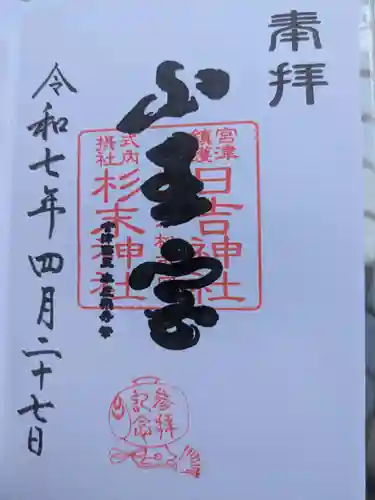 奉拝
山王宮
宮津
鎮護
日吉神社
式内
摂社
杉末神社
令和七年四月二十七日
參拝
記念